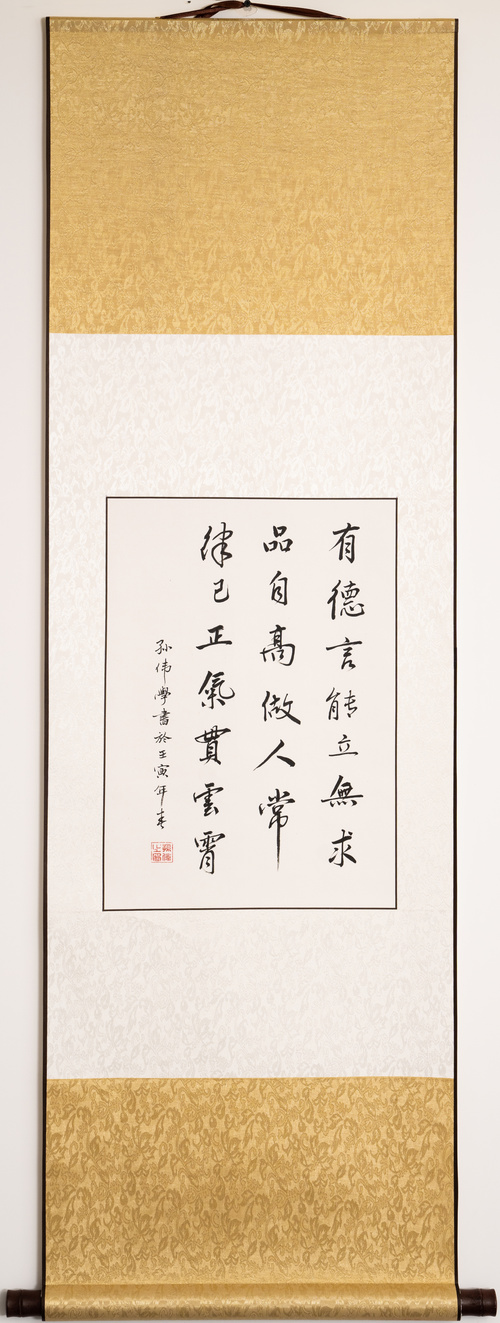 有德言能立無求
品自高做人常
律己正氣貫雲霄
孙伟學書於壬寅年春